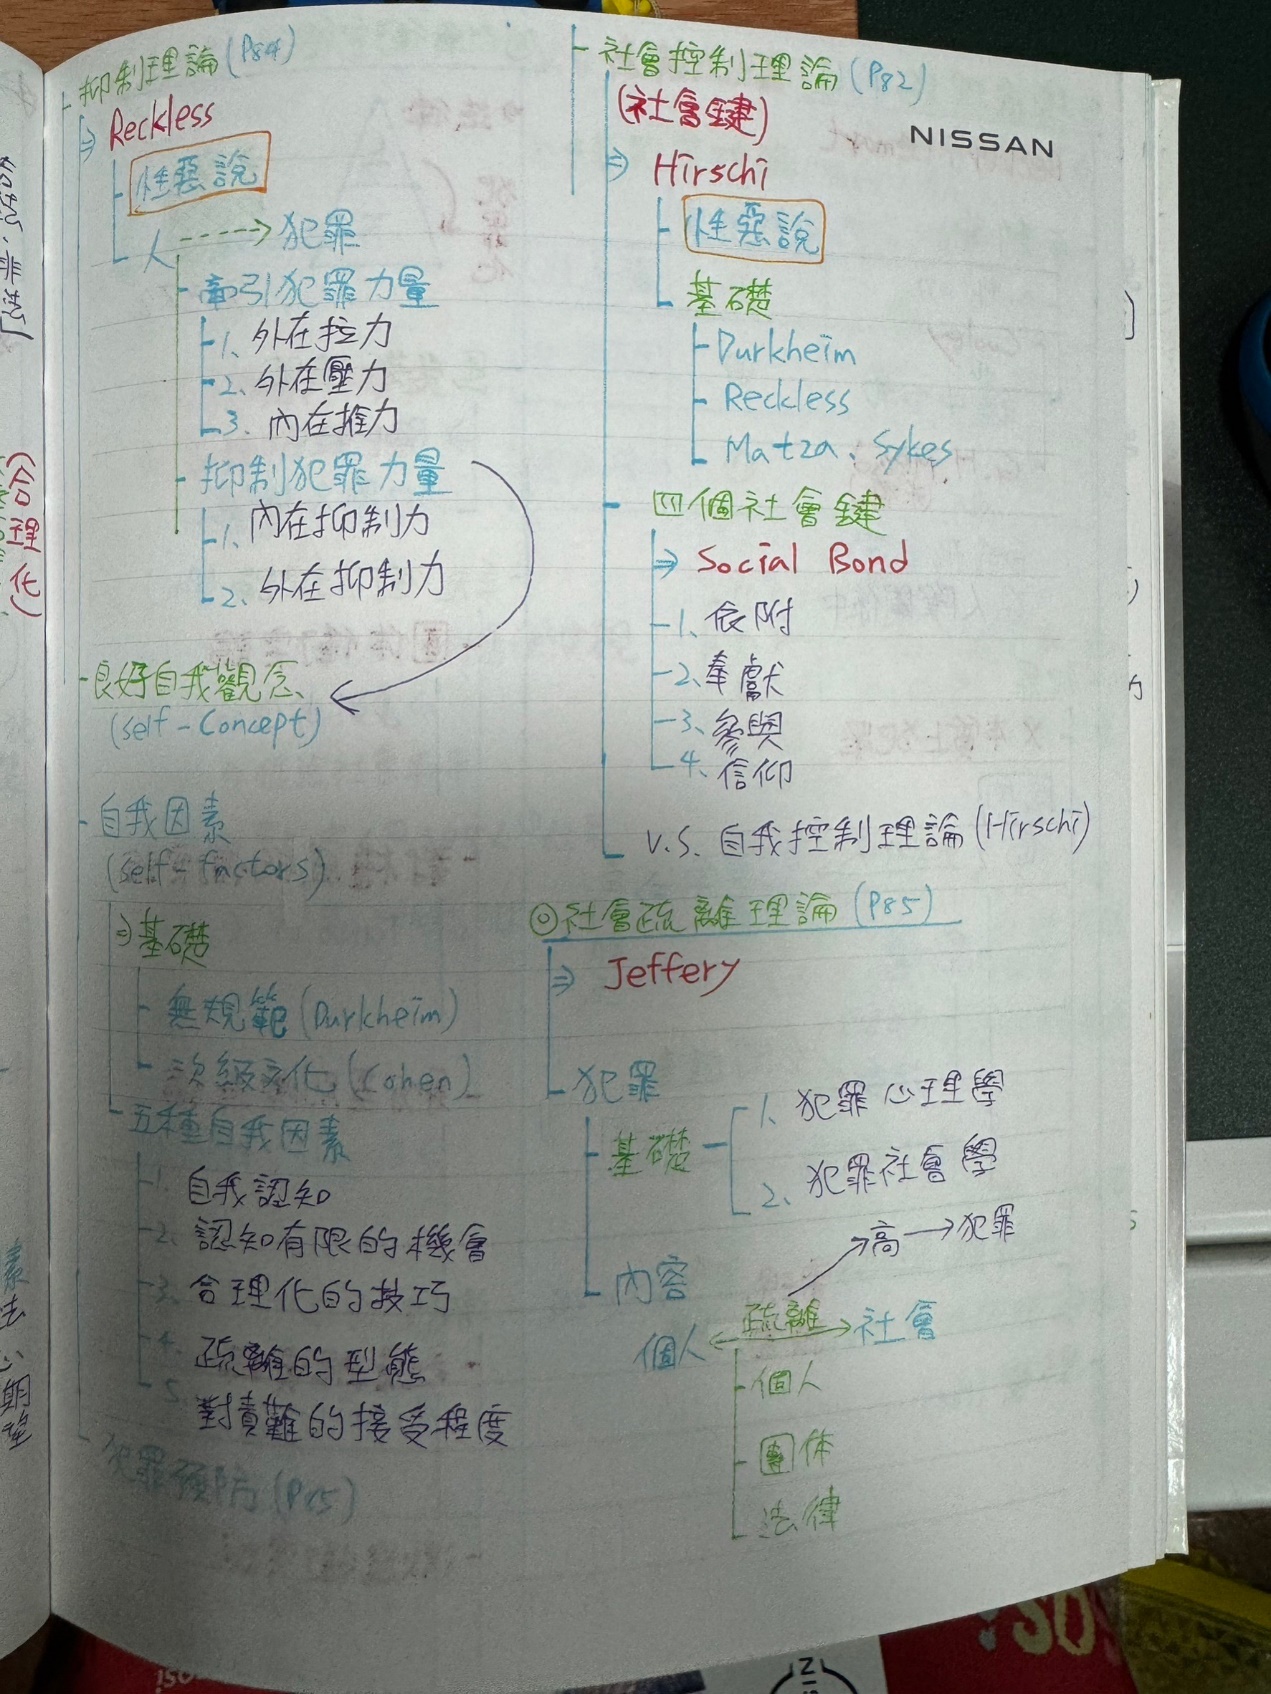 抑制理論(P84)
⇒ Reckless
性惡說
人 → 犯罪
牽引犯罪力量
1、外在拉力
2、外在壓力
3、內在推力
抑制犯罪力量
1、內在抑制力
2、外在抑制力
良好自我觀念
(self-Concept)
自我因素
(self-factors)
⇒基礎
無規範(Durkheim)
次級文化(Cohen)
五種自我因素
1. 自我認知
2. 認知有限的機會
3. 合理化的技巧
4. 疏離的型態
5. 對責難的接受程度
犯罪預防(P85)
社會控制理論(P82)
(社會鍵)
NISSAN
⇒ Hirschi
性惡說
基礎
Durkheim
Reckless
Matza、Sykes
四個社會鍵
⇒ Social Bond
1、依附
2、奉獻
3、參與
4、信仰
V.S. 自我控制理論(Hirschi)
◎社會疏離理論(P85)
⇒ Jeffery
犯罪
基礎
1. 犯罪心理學
2、犯罪社會學
內容
高→犯罪
個人 疏離 社會
個人
團体
法律
(合
理
化)